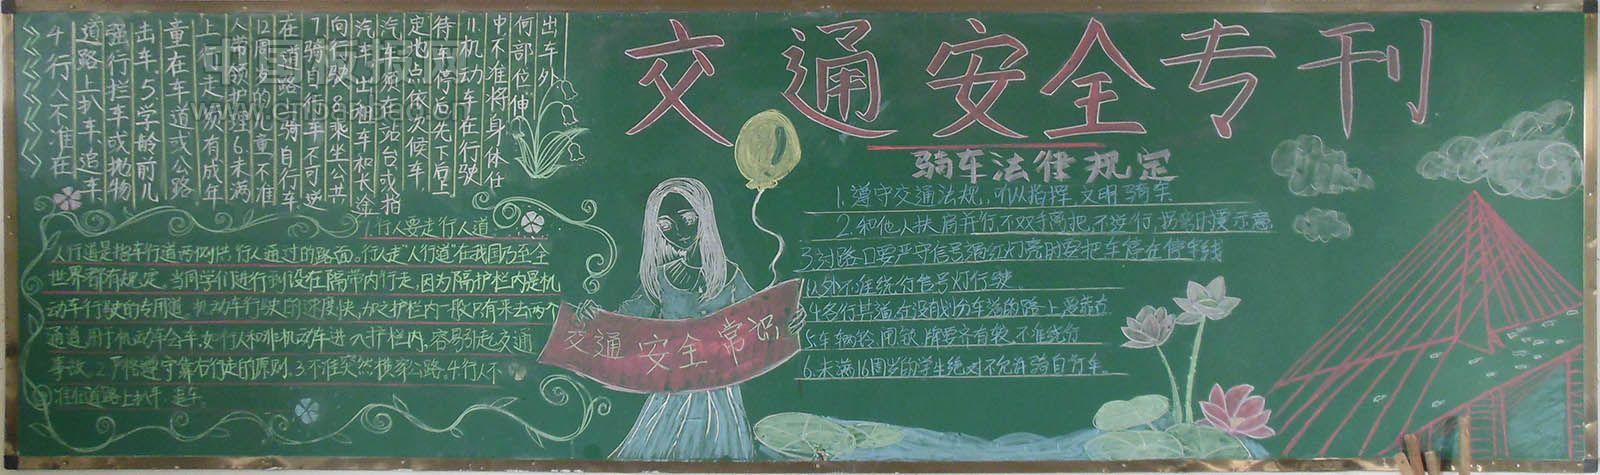 交通安全专刊
4行人不准在
道路上扒车追车
强行拦车或抛物
出车、5学龄前儿
童在车道或公路
上行走须有成年
人带领护理6.未满
12周岁的儿童不准
在道路骑自行车
7骑自行车不可逆
向行驶8.乘坐公共
汽车出租车和长途
汽车须在站台或指
定地点依次候车
待车停后先下后上
11.机动车在行驶
中不准将身体任
何部位伸
出车外
1.行人要走行人道
人行道是指车行道两侧供行人通过的路面。行人走"人行道"在我国乃至全
世界都有规定。当同学们进行到设在隔带内行走,因为隔护栏内是机
动车行驶的专用道,机动车行驶的速度快,加之护栏内一般只有来去两个
通道,用于机动车会车,如行人和非机动车进入护栏内,容易引起交通
事故.2严格遵守靠右行走的原则.3不准突然横穿公路.4行人不
准在道路上扒车、追车
交通安全常识
骑车法律规定
1.遵守交通法规,听从指挥,文明骑车.
2.和他人扶肩并行不双手离把,不逆行,拐弯时要示意
3.对路口要严守信号遇红灯亮时要把车停在停车线
以外不准绕行信号灯行驶.
4.多行其道,在没有划分车道的路上要靠右
5.车辆铃、闸、锁、牌要齐有装,不准绕行
6.未满16周岁的学生绝对不允许骑自行车.
中国板报网
www.cnbanbao.cn